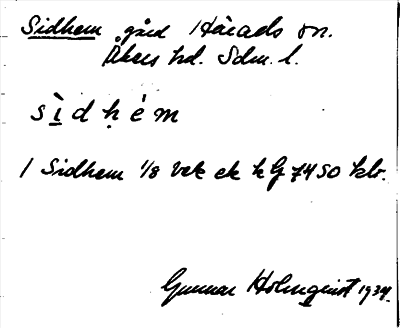 Sidhem gård Härads sn.
Åkers hd. Sdm. l.
sìdḥém
1 Sidhem 1/8 vek ek kG 7450 kbr.
Gunnar Holmqvist 1934.